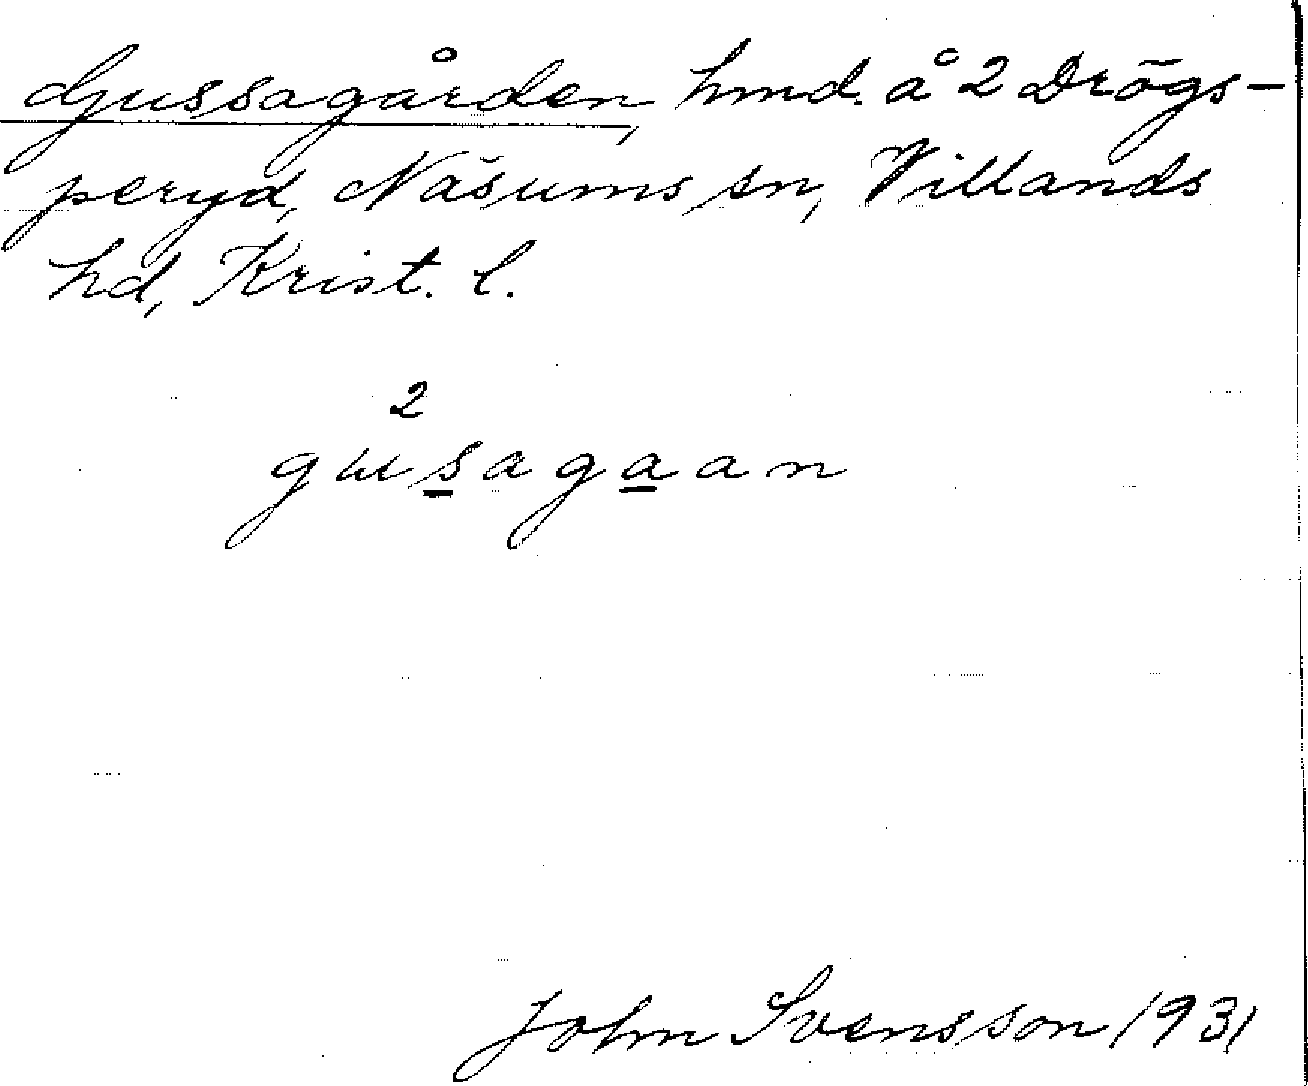 Gussagården, hmd. å 2 Drögs-
peryd, Näsums sn, Villands
hd, Krist. l.
2
gusagaan
John Svensson 1931